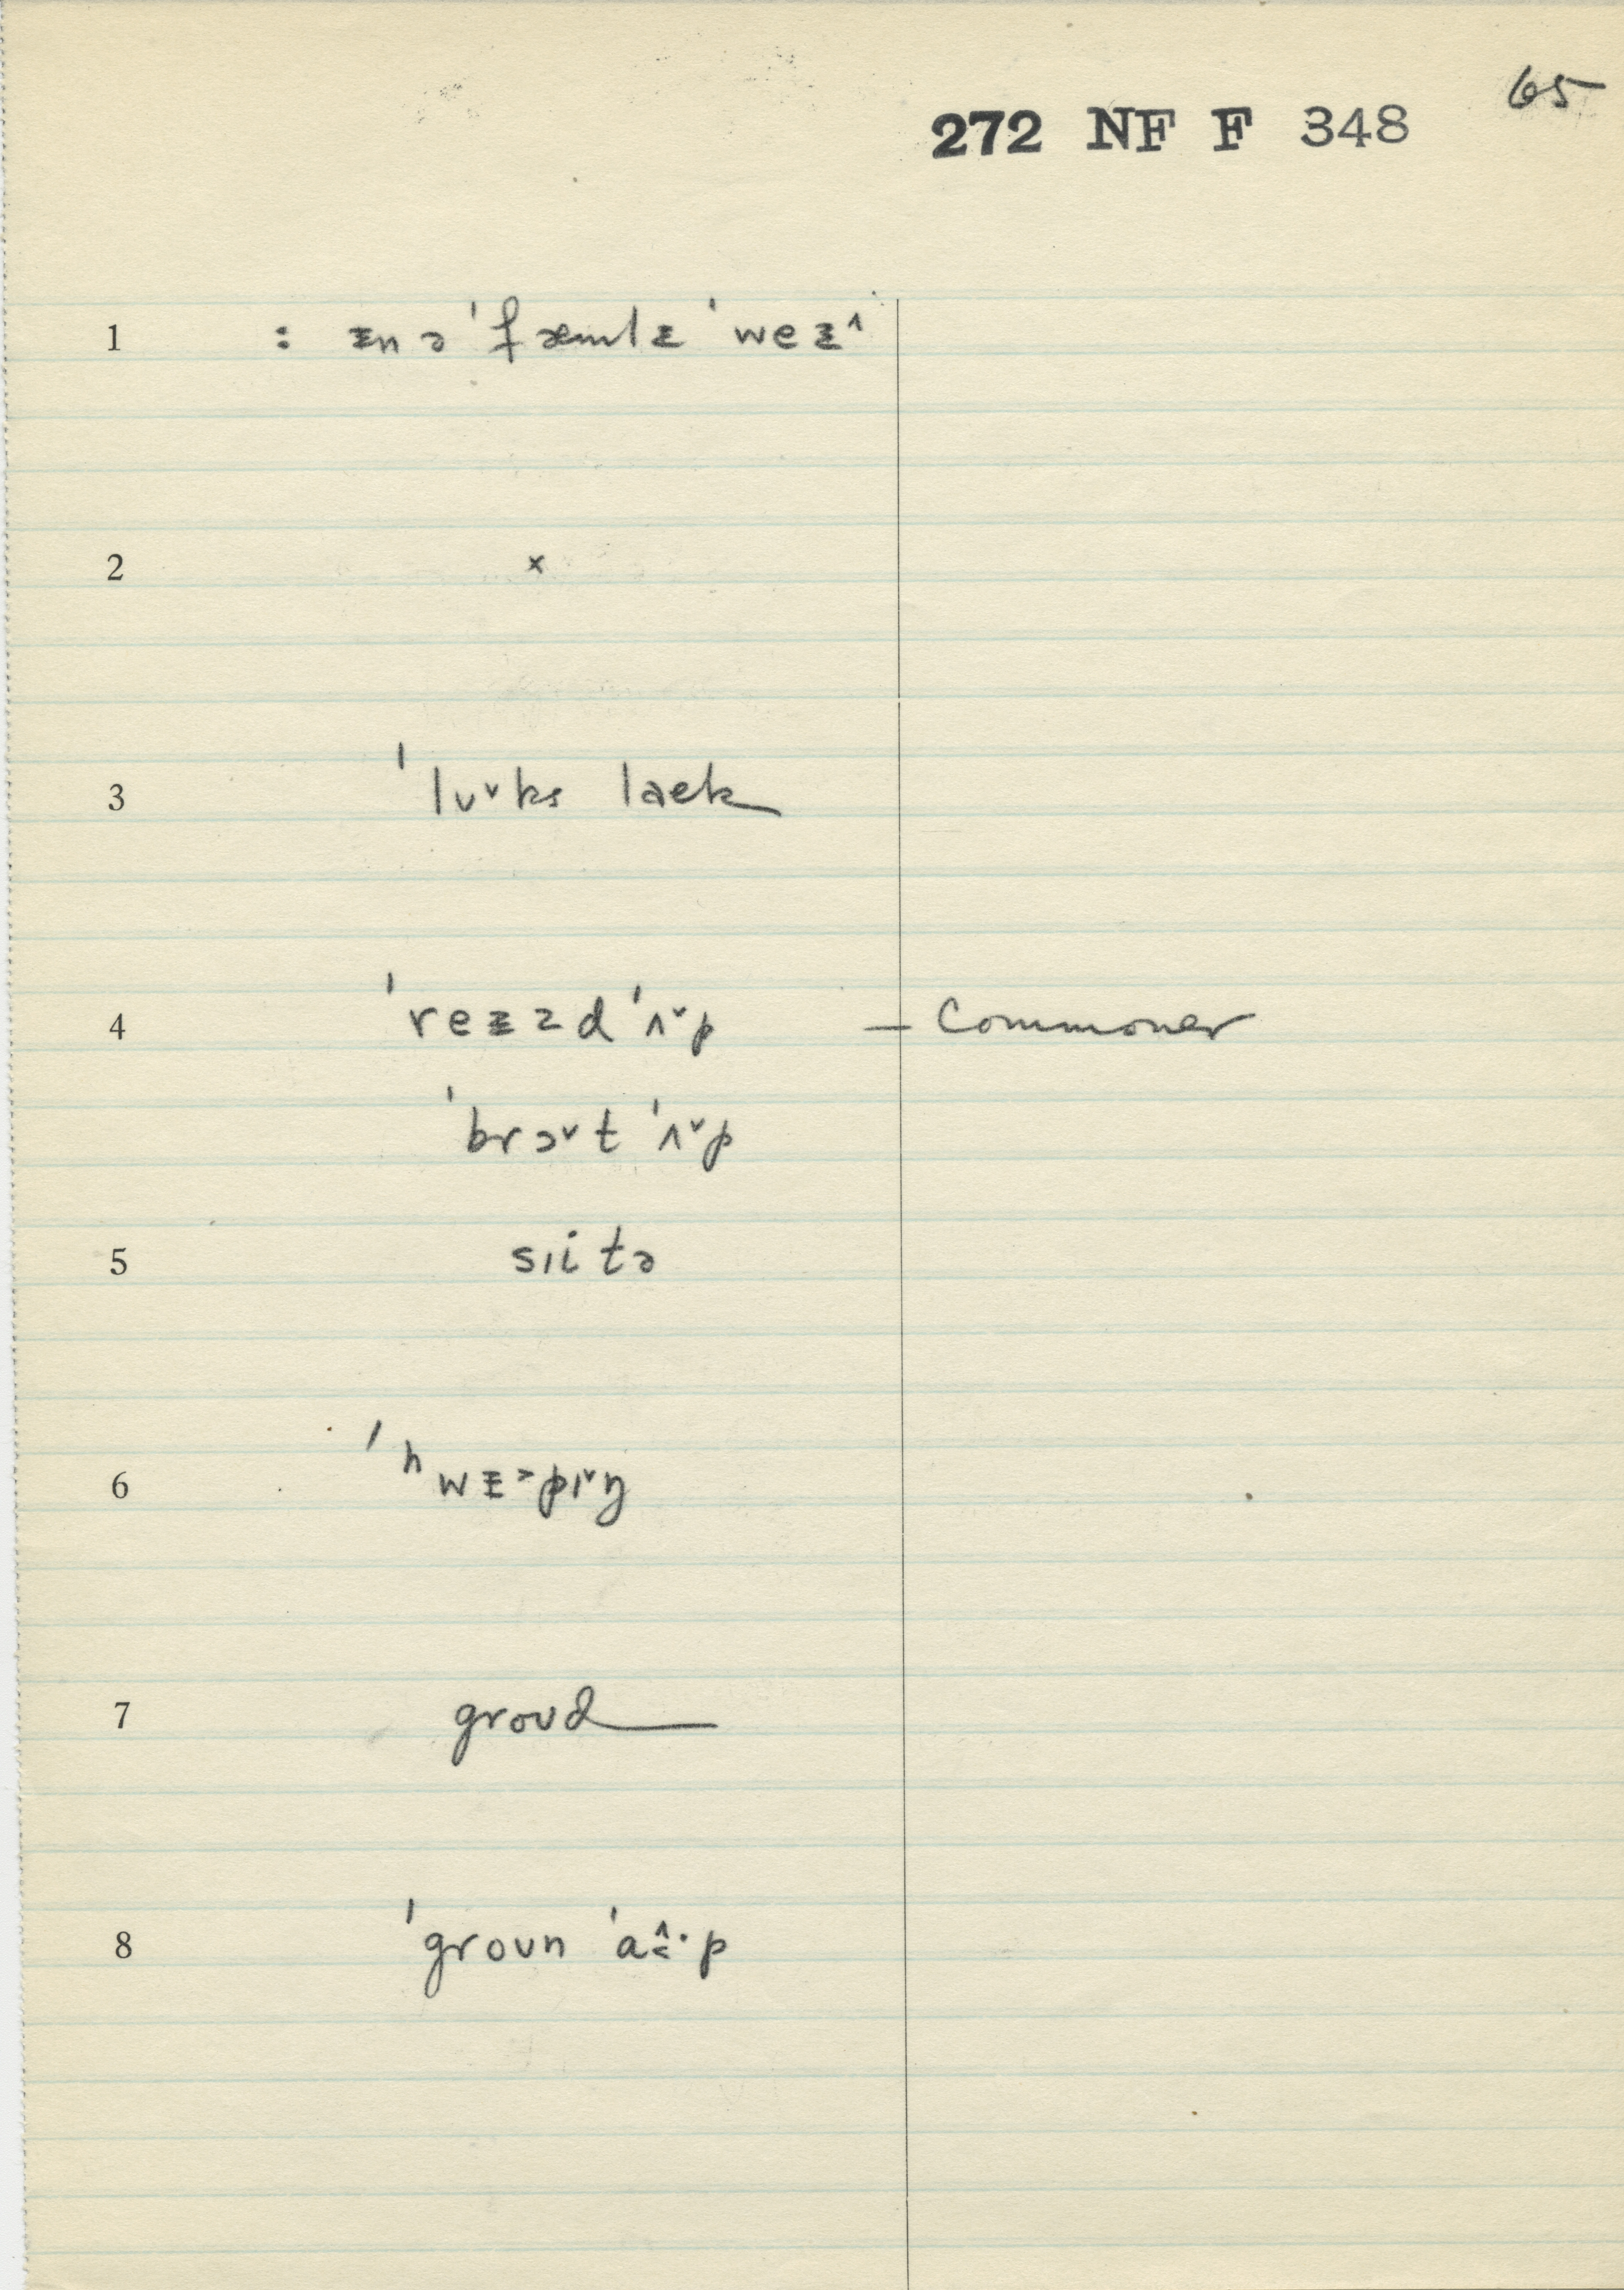 65
272 NF F 348
1 : ᵻn ə ˈfæmlᵻ ˈweᵻ˄
2 x
3 ˈlʊ˅ks laek
4 ˈreᵻzd ˈʌ˅p – Commoner
ˈbrɔ˅t ˈʌ˅p
5 sɪi tə
6 ˈʰwᵻ˃pɪ˅ŋ
7 groʊd
8 ˈgroʊn ˈa p